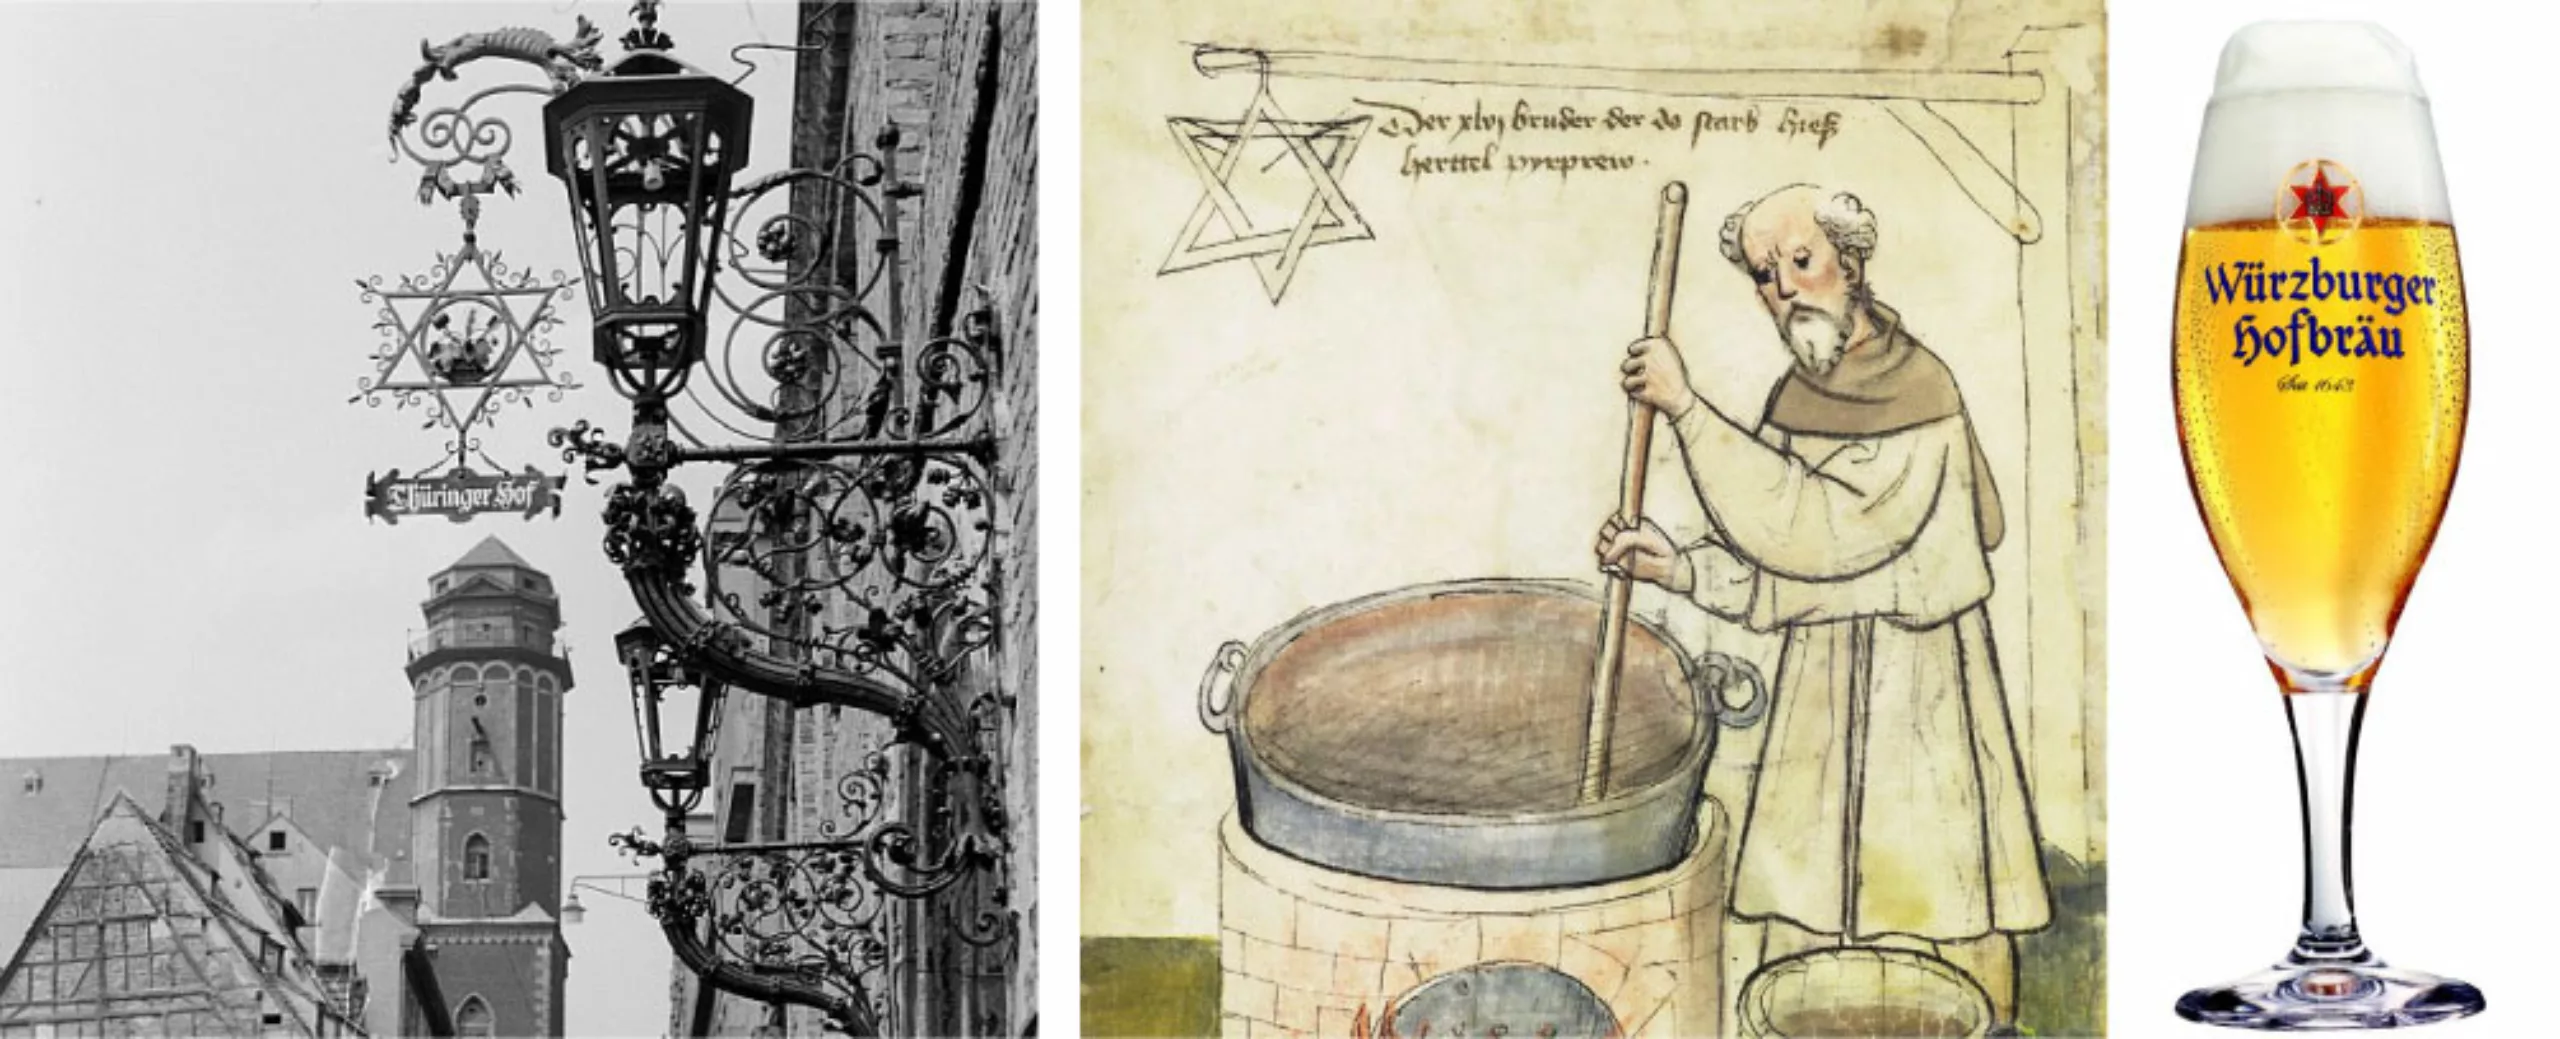 Thüringer Hof
Der xlvj bruder der do starb hieß
herttel pyrprew.
Würzburger
Hofbräu
Seit 1643